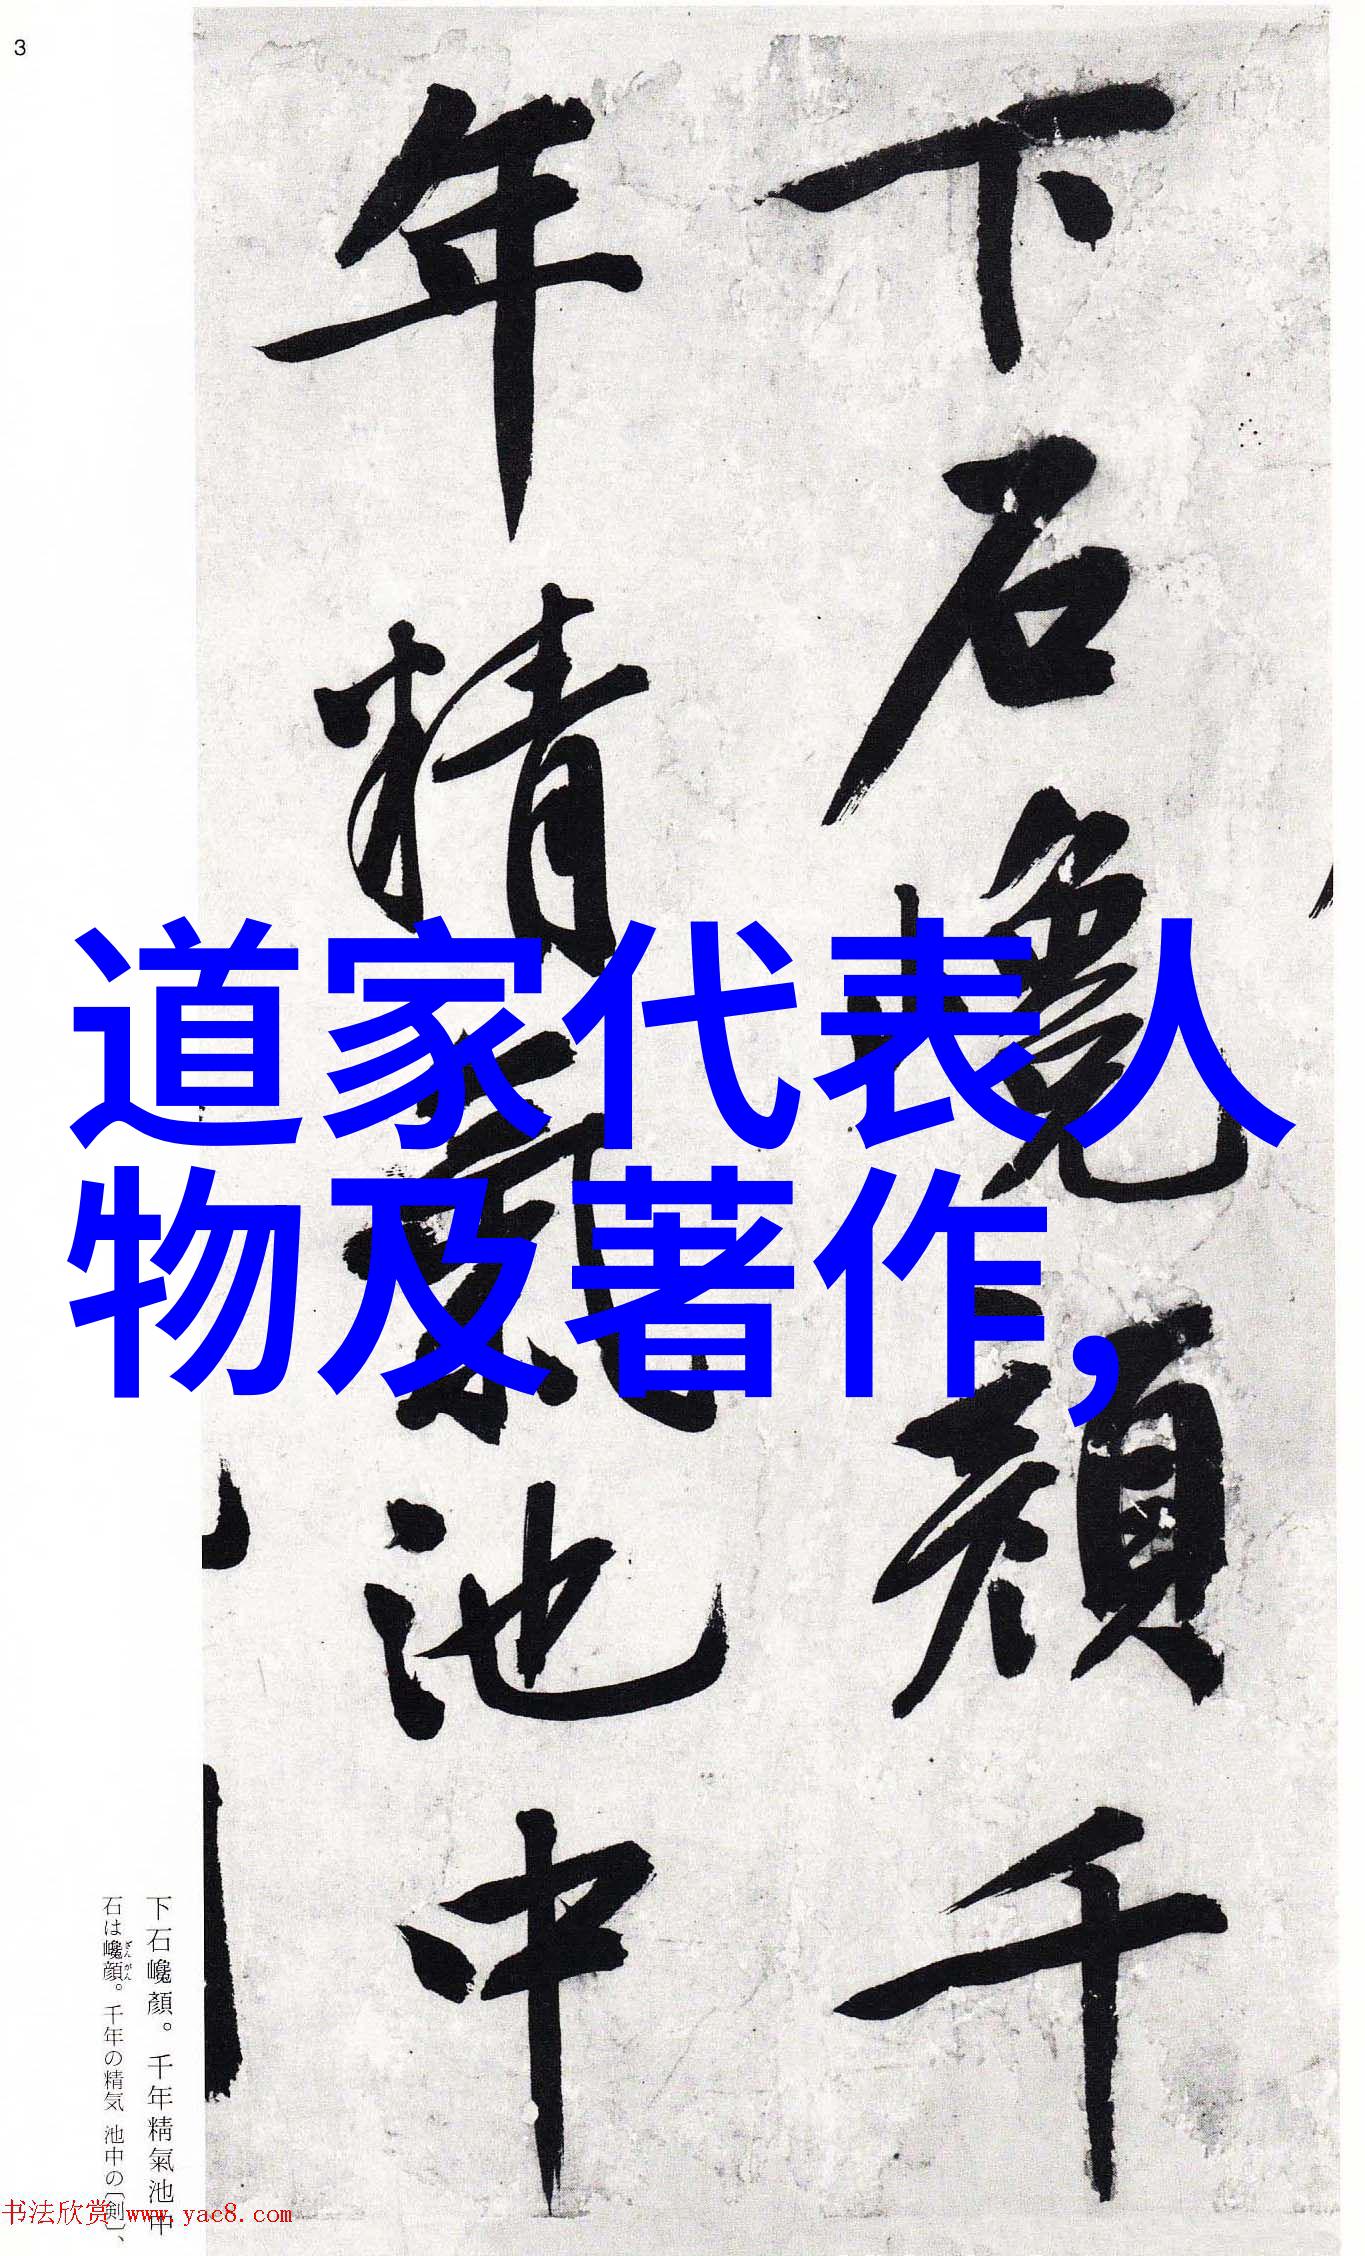 3
下石巉顏千
年精氣池中
道家代表人
物及著作,
下石巉顏。千年精氣池中
石は巉顔。千年の精気 池中の〔剣〕、
ざんがん
书法欣赏 www.yac8.com